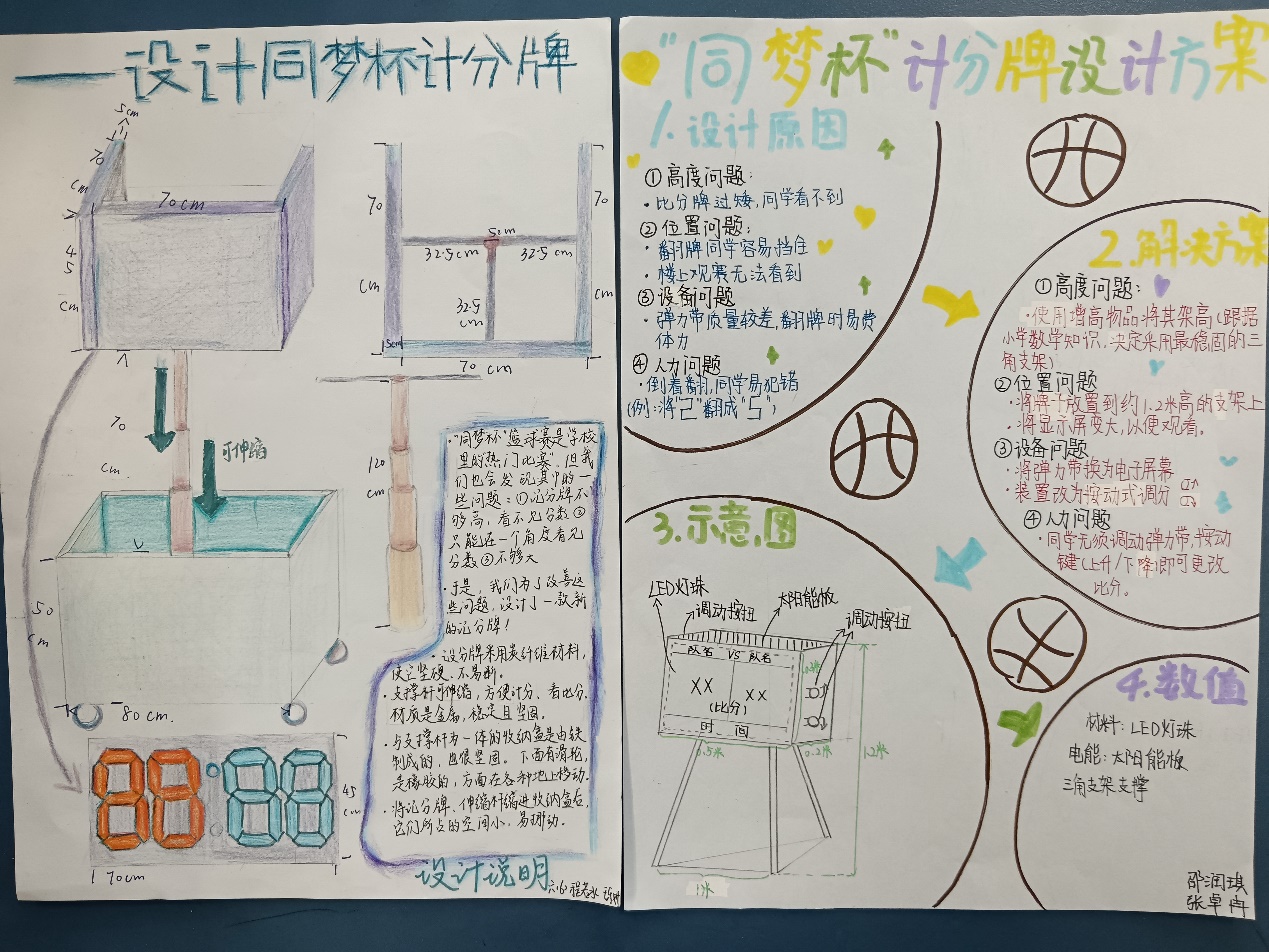 设计同梦杯计分牌
5cm
70
cm
70cm
45
cm
70
cm
可伸缩
50
cm
80cm.
70
cm
5cm
32.5cm
32.5cm
32.5
cm
70
cm
5cm
70cm
120
cm
45
cm
70cm
·"同梦杯"篮球赛是学校
里的热门比赛,但我
们也会发现其中的一
些问题:①记分牌不
够高,看不见分数②
只能在一个角度看见
分数③不够大
·于是,我们为了改善这
些问题,设计了一款新
的记分牌!
·设分牌采用炭纤维材料,
使它坚硬、不易断。
·支撑杆可伸缩,方便计分、看比分.
材质是金属,稳定且坚固。
·与支撑杆为一体的收纳盒是由铁
制成的,也很坚固。下面有滑轮,
是橡胶的,方面在各种地上移动.
·将记分牌、伸缩杆缩进收纳盒后,
它们所占的空间小,易挪动.
设计说明
"同梦杯"计分牌设计方案
1.设计原因
①高度问题:
·比分牌过矮,同学看不到
②位置问题:
·翻牌同学容易挡住
·楼上观赛无法看到
③设备问题
·弹力带质量较差,翻牌时易费
体力
④人力问题
·倒着翻,同学易犯错
(例:将"2"翻成"5")
2.解决方案
①高度问题:
·使用增高物品将其架高(跟据
小学数学知识,决定采用最稳固的三
角支架)
②位置问题
·将牌子放置到约1.2米高的支架上
·将显示屏变大,以便观看。
③设备问题
·将弹力带换为电子屏幕
·装置改为按动式调分
④人力问题
·同学无须调动弹力带,按动
键(上升/下降)即可更改
比分。
3.示意图
LED灯珠
调动按钮
太阳能板
调动按钮
队名 VS 队名
XX
XX
(比分)
时间
0.5米
0.2米
1.2米
1米
4.数值
材料:LED灯珠
电能:太阳能板
三角支架支撑
邵润琪
张卓冉